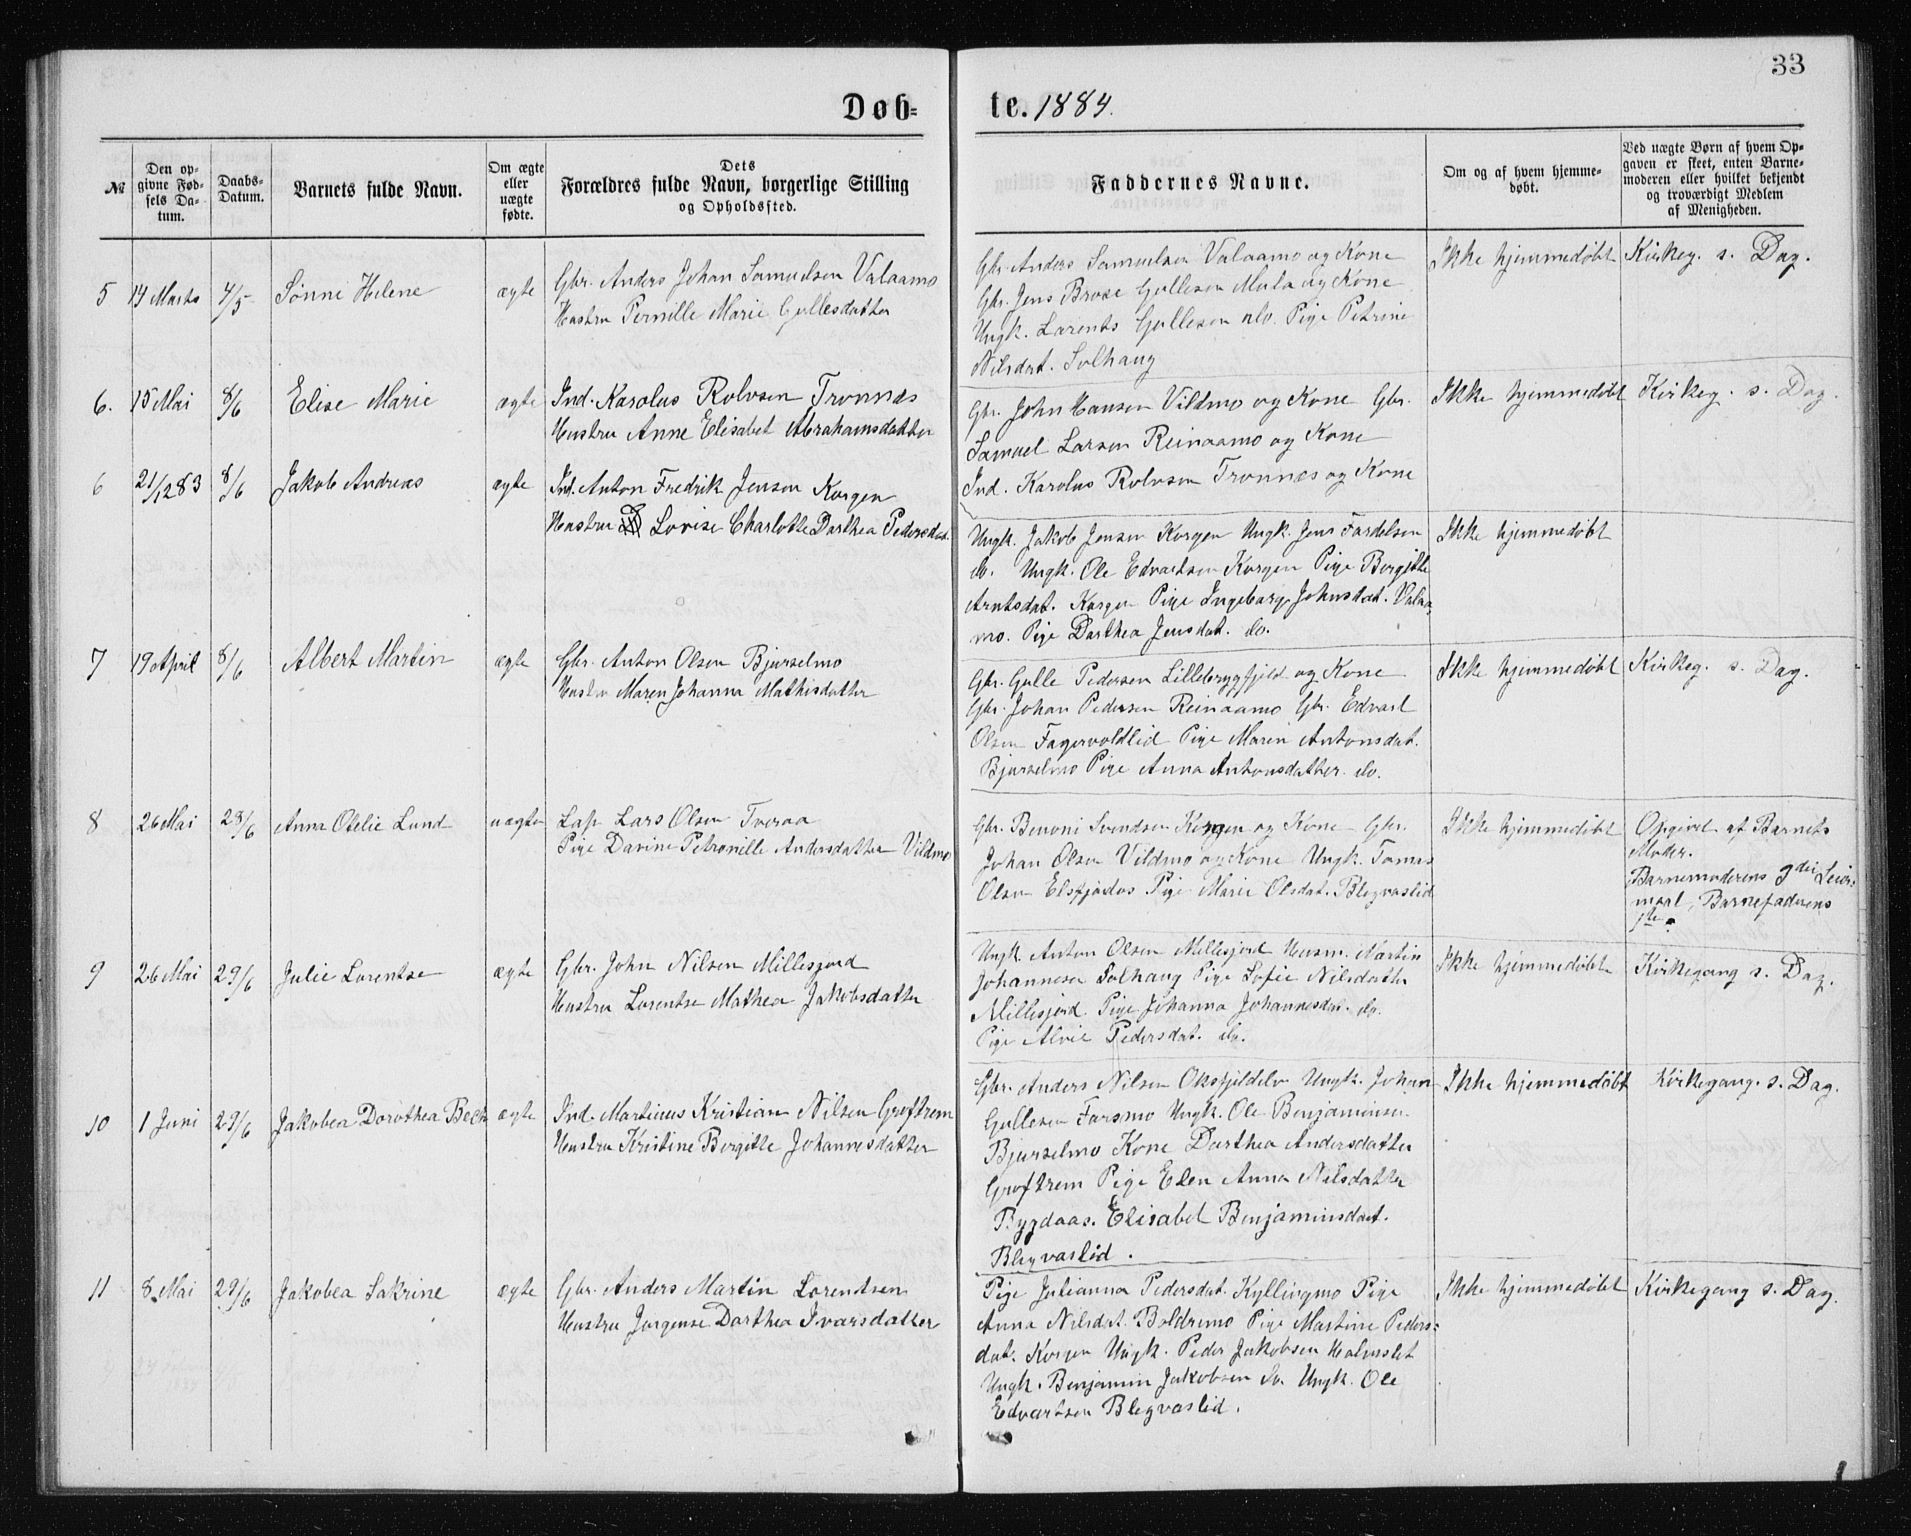 33
Døb= te. 1884.
№
Den op-
givne Fød-
sels Da-
tum.
Daabs-
Datum.
Barnets fulde Navn.
Om ægte
eller
uægte
fødte.
Dets
Forældres fulde Navn, borgerlige Stilling
og Opholdssted.
Faddernes Navne.
Om og af hvem hjemme-
døbt.
Ved uægte Børn af hvem Op-
gaven er skeet, enten Barne-
moderen eller hvilket bekjendt
og troværdigt Medlem
af Menigheden.
5 14 Marts 4/5 Sønni Helene ægte
Gbr. Anders Johan Samuelsen Valaamo
Hustru Pernille Marie Gullesdatter
Gbr. Anders Samuelsen Valaamo og Kone
Gbr. Jens Brose Gullesen Mula og Kone
Ungk. Lorents Gullesen Pige Petrine
Nilsdat. Solhaug
Ikke hjemmedøbt
Kirkeg. s. Dag.
6. 15 Mai 8/6 Elise Marie ægte
Ind. Karolus Rolvsen Tronnæs
Hustru Anne Elisabet Abrahamsdatter
Gbr. John Hansen Vildmo og Kone Gbr.
Samuel Larsen Reinaamo og Kone
Ind. Karolus Rolvsen Tronnæs og Kone
Ikke hjemmedøbt
Kirkeg. s. Dag.
6 21/12 83 8/6 Jakob Andreas ægte
Ind. Anton Fredrik Jensen Korgen
Hustru Lovise Charlotte Darthea Pedersdat.
Ungk. Jakob Jensen Korgen Ungk. Jens Fardelsen
do. Ungk. Ole Edvartsen Korgen Pige Bergitte
Arntsdat. Korgen Pige Ingeborg Johnsdat. Valaa
mo. Pige Darthea Jensdat. do.
Ikke hjemmedøbt
7 19 April 8/6 Albert Martin ægte
Gbr. Anton Olsen Bjurselmo
Hustru Maren Johanna Mathisdatter
Gbr. Gulle Pedersen Lillebrygfjeld og Kone
Gbr. Johan Pedersen Reinaamo Gbr. Edvart
Olsen Fagervoldlid Pige Maren Antonsdat.
Bjurselmo Pige Anna Antonsdatter do.
Ikke hjemmedøbt
Kirkeg. s. Dag.
8 26 Mai 29/6 Anna Otelie Lund uægte
Lap Lars Olsen Tveraa
Pige Davine Petronille Andersdatter Vildmo
Gbr. Benoni Svendsen Korgen og Kone Gbr.
Johan Olsen Vildmo og Kone Ungk. Tomas
Olsen Elsfjordos Pige Marie Olsdat. Blegvaslid
Ikke hjemmedøbt
Opgivet af Barnets
Moder.
Barnemoderens 3die Leier-
maal, Barnefaderens
1ste.
9 26 Mai 29/6 Julie Lorentse ægte
Gbr. John Nilsen Millesjord
Hustru Lorentse Mathea Jakobsdatter
Ungk. Anton Olsen Millesjord Husm. Martin
Johannesen Solhaug Pige Sofie Nilsdatter
Millesjord Pige Johanna Johannesdat. do.
Pige Alvie Pedersdat. do.
Ikke hjemmedøbt
Kirkegang s. Dag.
10 1 Juni 29/6 Jakobea Dorothea Beck ægte
Ind. Martinus Kristian Nilsen Groftrem
Hustru Kristine Bergitte Johannesdatter
Gbr. Anders Nilsen Oksfjeldelv Ungk. Johan
Gullesen Farsmo Ungk. Ole Benjaminsen
Bjurselmo Kone Darthea Andersdatter
Groftrem Pige Elen Anna Nilsdatter
Bygdaas. Elisabet Benjaminsdat.
Blegvaslid.
Ikke hjemmedøbt
Kirkegang. s. Dag.
11 8 Mai 29/6 Jakobea Sakrine ægte
Gbr. Anders Martin Lorentsen
Hustru Jørgense Darthea Ivarsdatter
Pige Julianna Pedersdat. Kyllingmo Pige
Anna Nilsdat. Boldremo Pige Martine Peders=
dat. Korgen Ungk. Peder Jakobsen Holmslet
Ungk. Benjamin Jakobsen Do. Ungk. Ole
Edvartsen Blegvaslid.
Ikke hjemmedøbt
Kirkegang s. Dag.